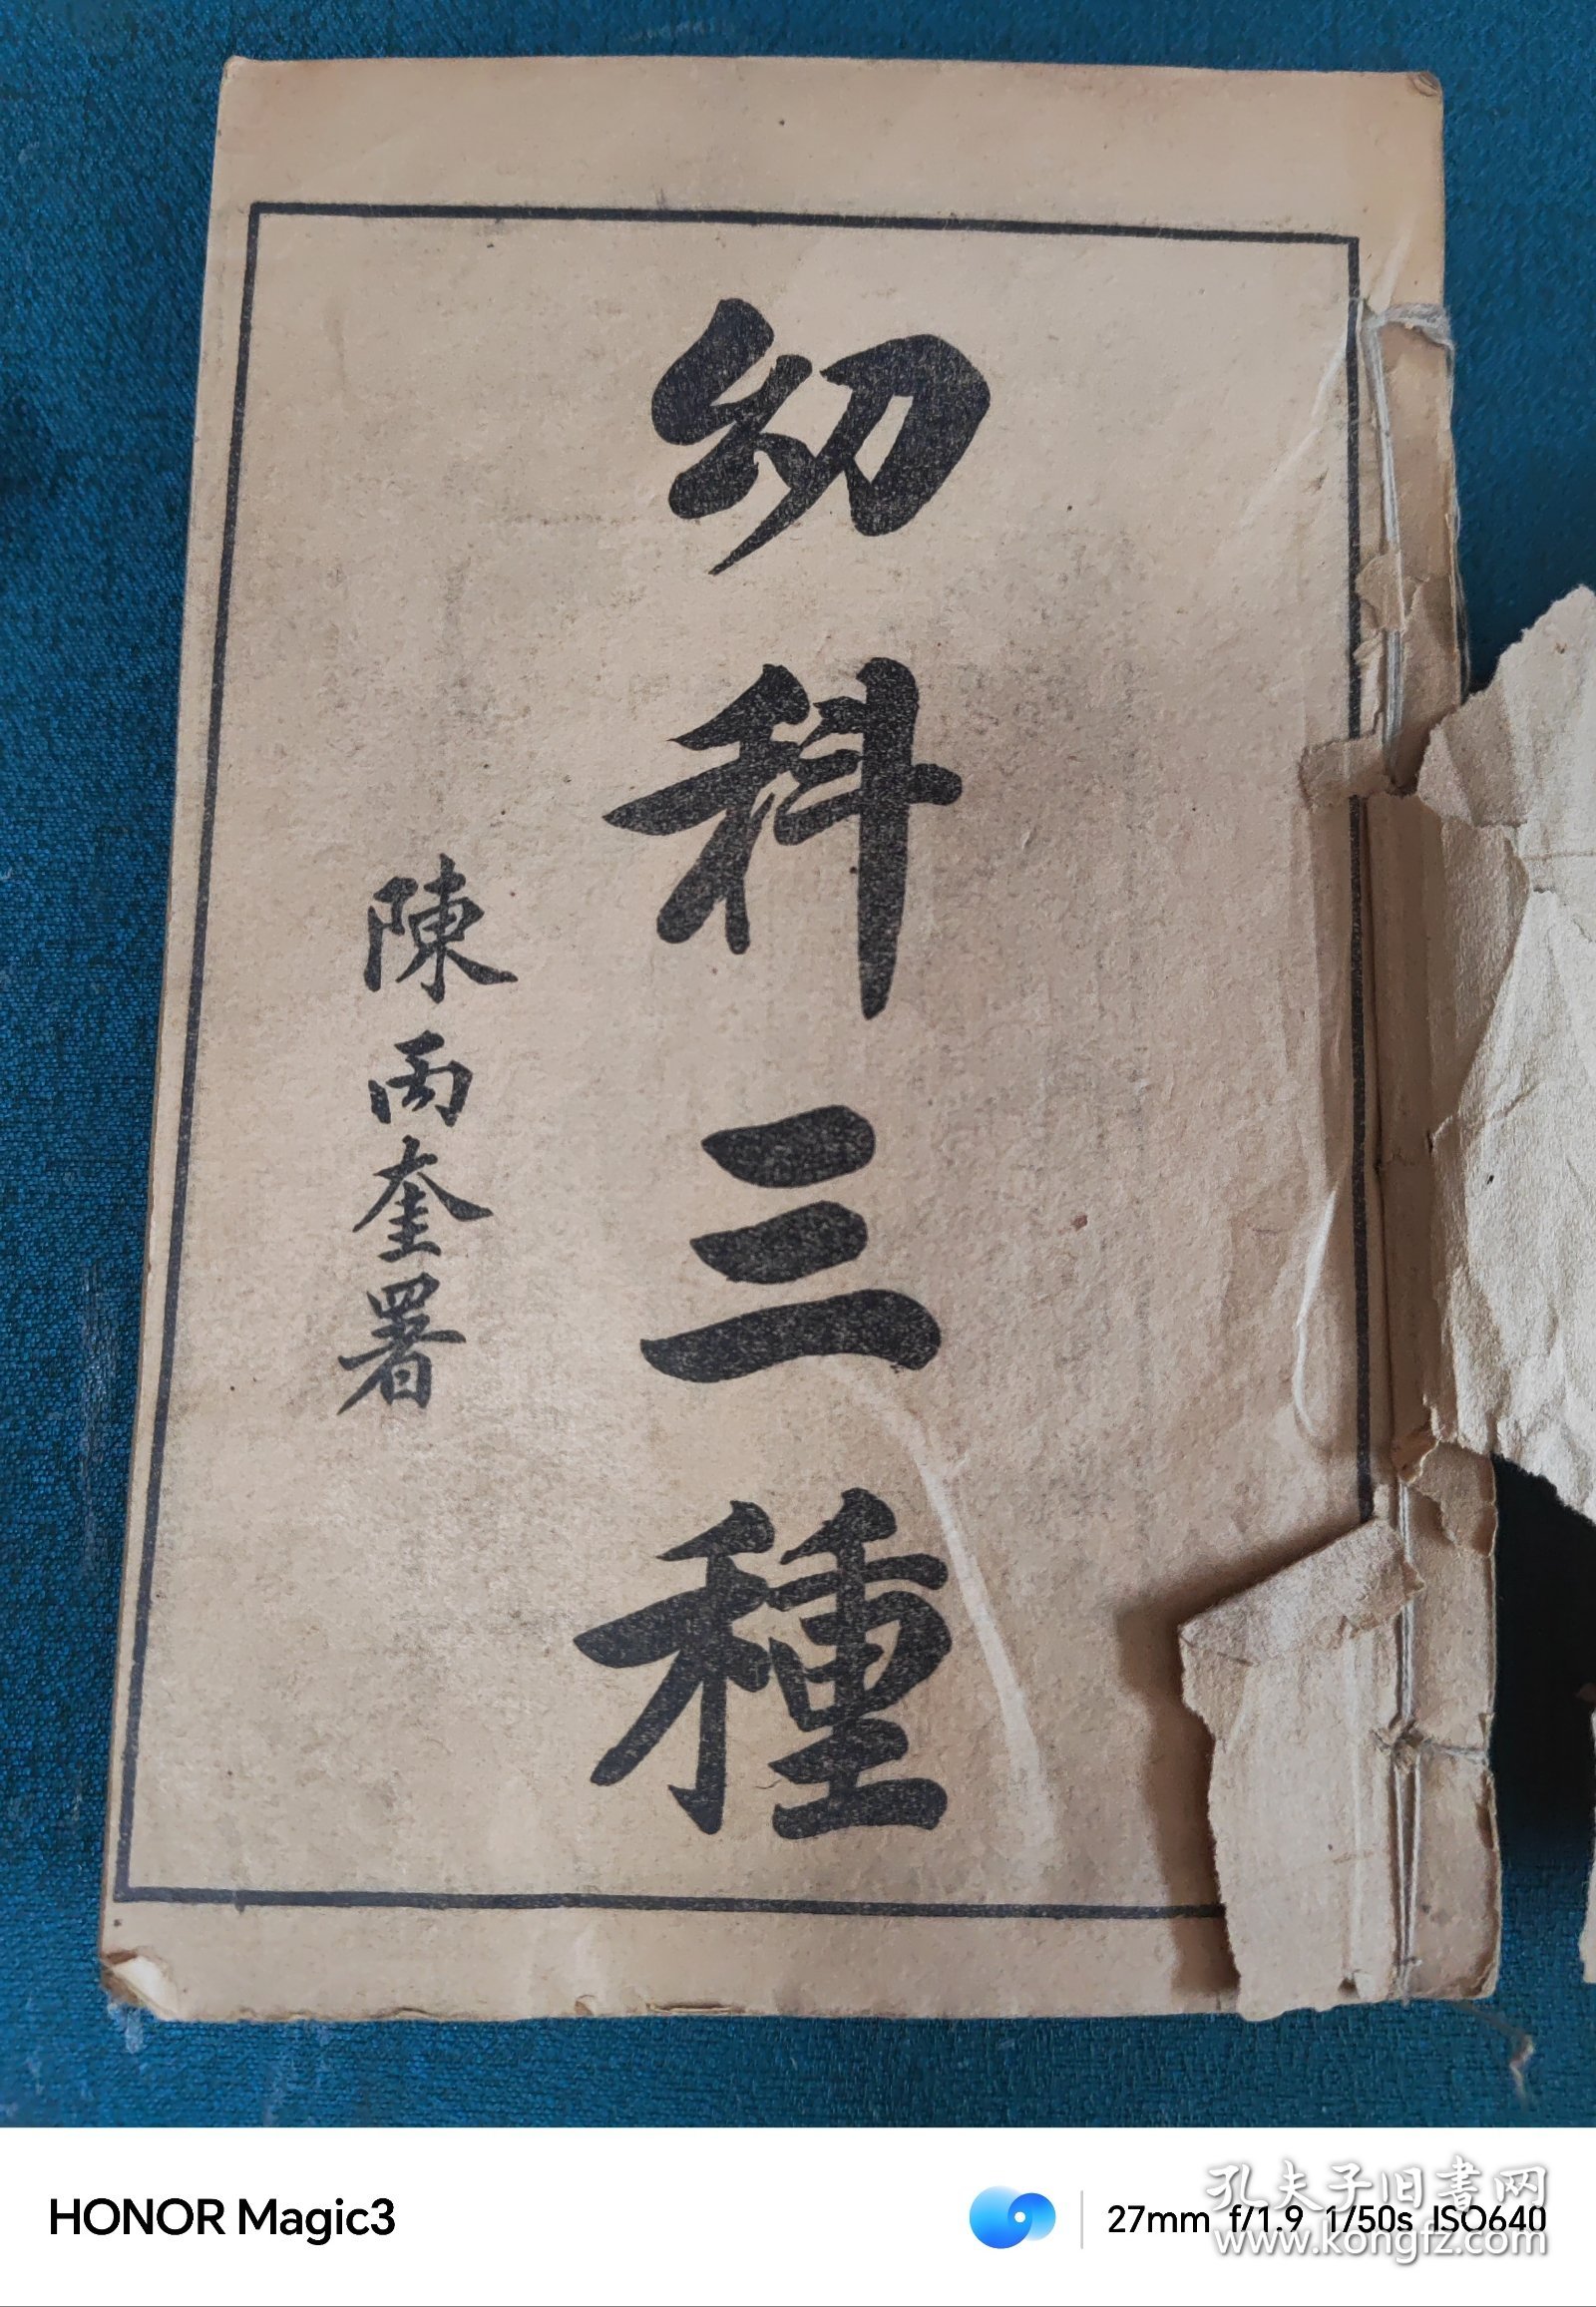 幼科三種
陳丙奎署
HONOR Magic3
27mm f/1.9 1/50s ISO640
孔夫子旧书网
www.kongfz.com